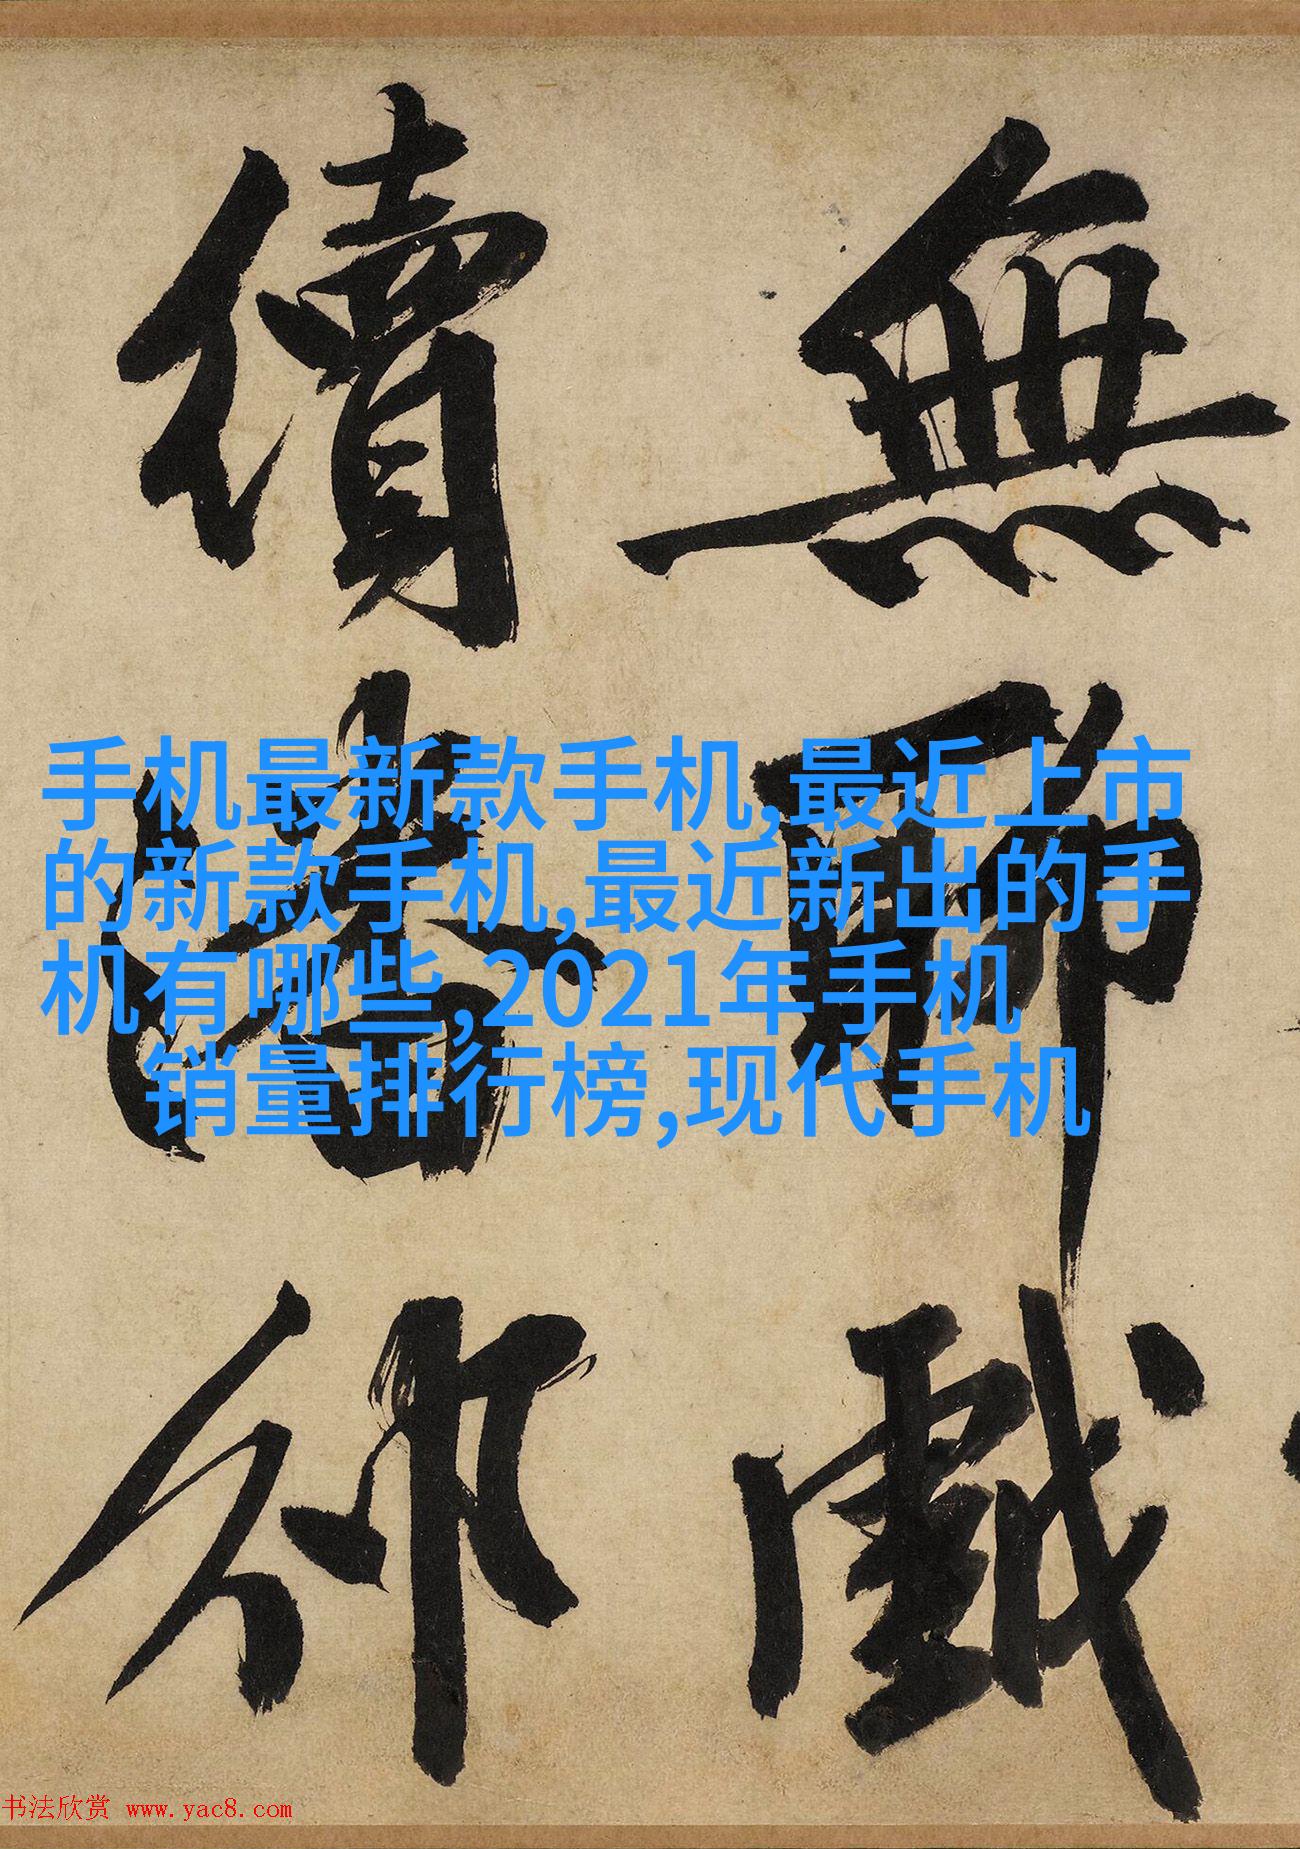 無聊戲
續潘邠
手机最新款手机,最近上市
的新款手机,最近新出的手
机有哪些,2021年手机
销量排行榜,现代手机
书法欣赏 www.yac8.com